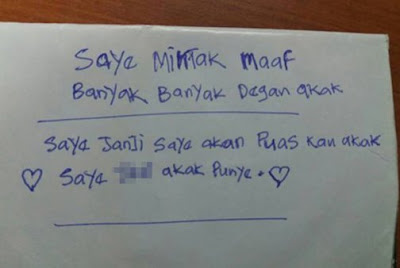 Saye Mintak maaf
Banyak Banyak Degan akak
Saye Janji Saye akan Puas kan akak
Saye akak Punye.